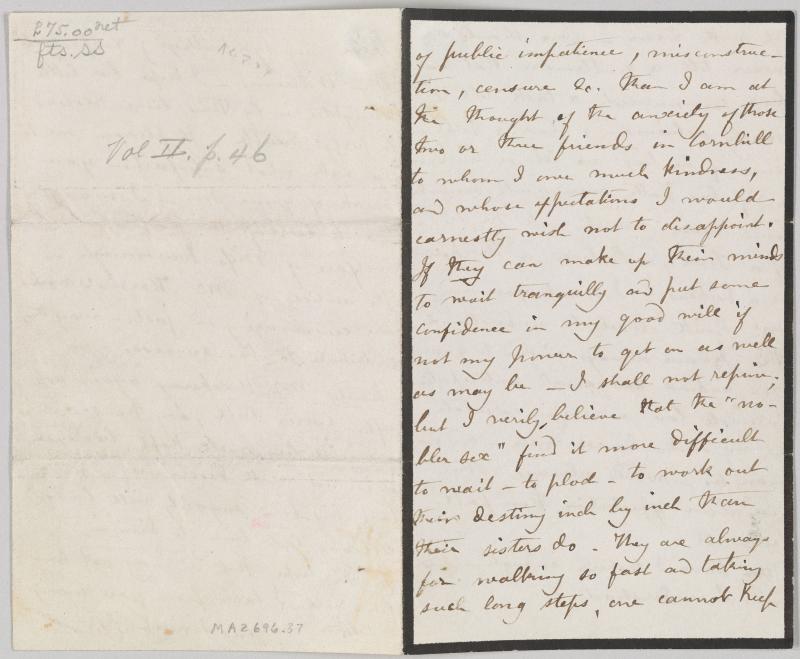 275.00 net
fts. SS
Vol II. p. 46
MA2696.37
of public impatience, misconstruc-
tion, censure &c. than I am at
the thought of the anxiety of those
two or three friends in Cornhill
to whom I owe much kindness,
and whose expectations I would
earnestly wish not to disappoint.
If they can make up their minds
to wait tranquilly and put some
confidence in my good will if
not my power to get on as well
as may be — I shall not repine;
but I verily believe that the "no-
bler sex" find it more difficult
to wait — to plod — to work out
their destiny inch by inch than
their sisters do. They are always
for walking so fast and taking
such long steps, one cannot keep